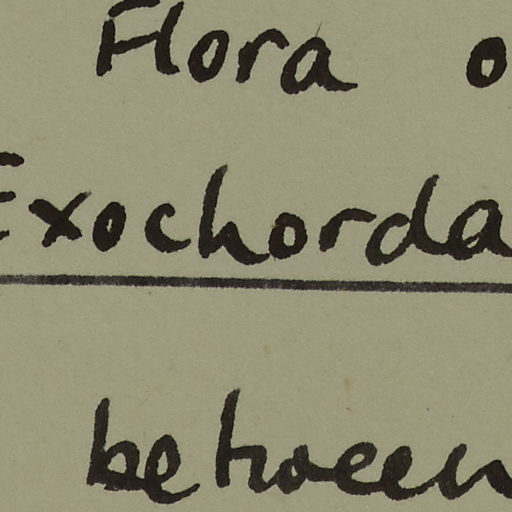 Flora o
Exochorda
between